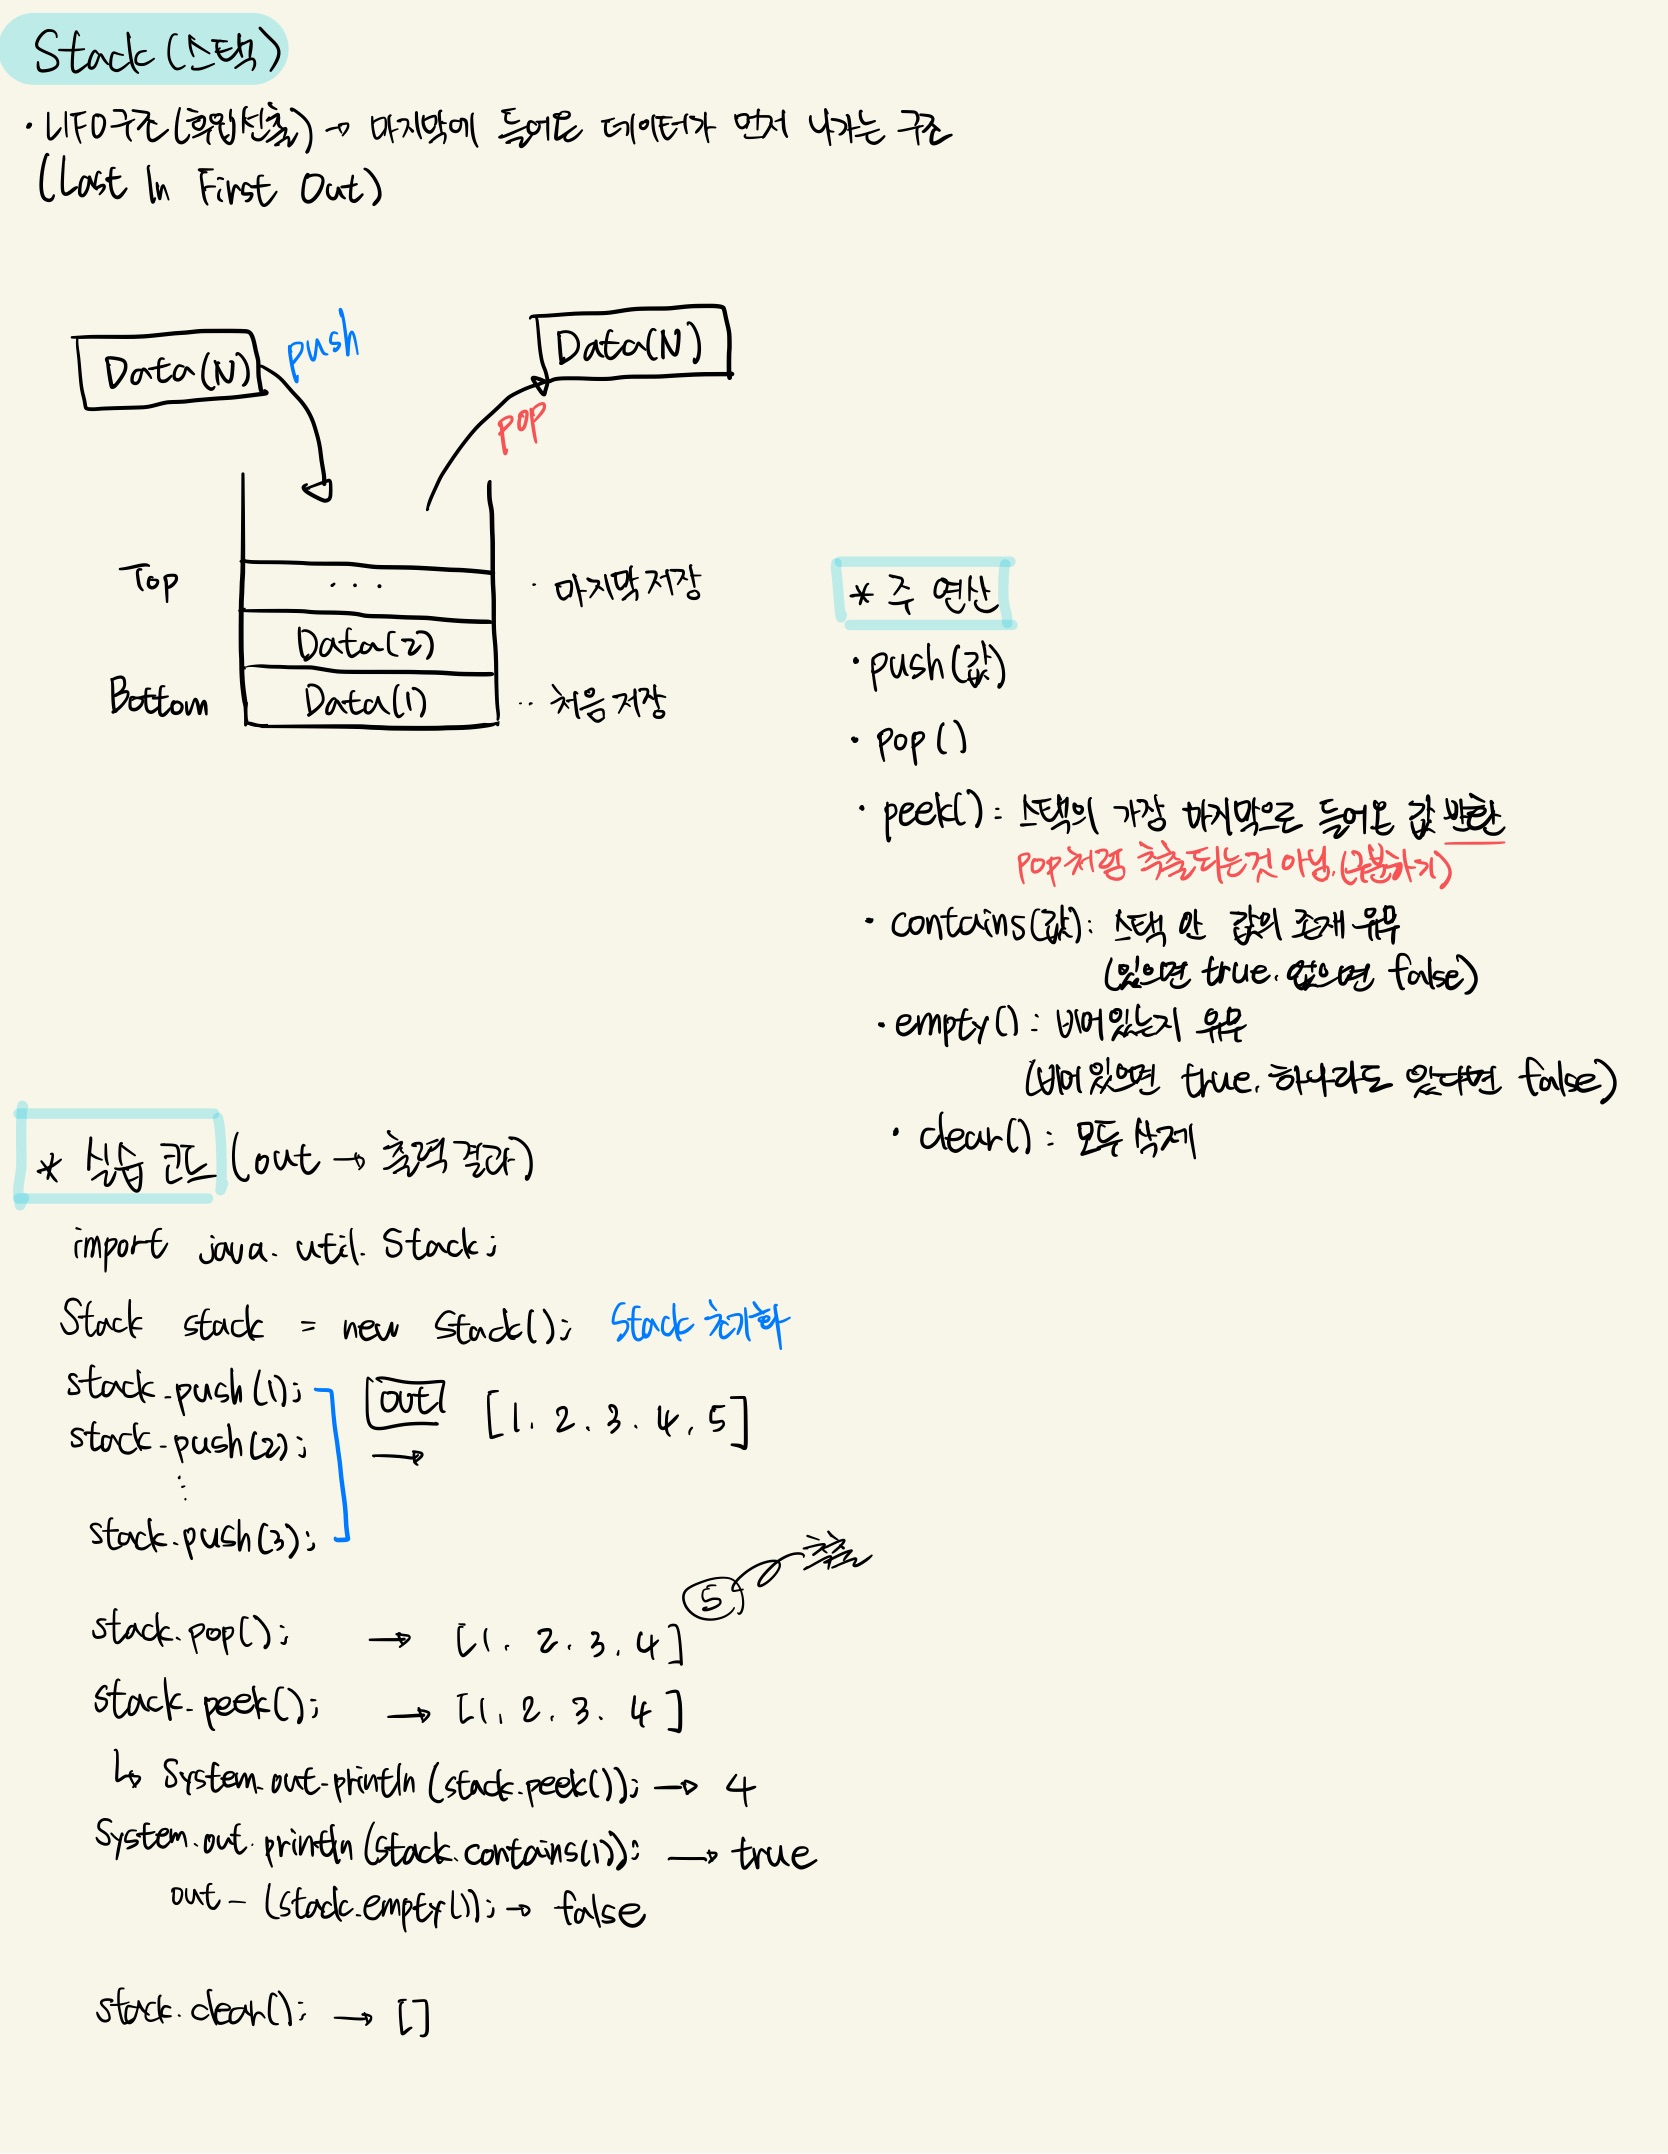 Stack (스택)
· LIFO구조(후입선출) → 마지막에 들어온 데이터가 먼저 나가는 구조
(Last In First Out)
Data(N)
push
Data(N)
pop
Top
· · ·
· 마지막 저장
Data(2)
Bottom
Data(1)
·· 처음 저장
* 주 연산
· push(값)
· pop()
· peek() : 스택의 가장 마지막으로 들어온 값 반환
pop처럼 추출되는것 아님.(구분하기)
· contains(값) : 스택 안 값의 존재 유무
(있으면 true. 없으면 false)
· empty() : 비어있는지 유무
(비어있으면 true. 하나라도 있다면 false)
· clear() : 모두 삭제
* 실습 코드 (out → 출력 결과)
import java.util.Stack;
Stack stack = new Stack(); Stack 초기화
stack.push(1);
stack.push(2);
⋮
stack.push(3);
out
→ [1. 2. 3. 4. 5]
5 추출
stack.pop(); → [1. 2. 3. 4]
stack.peek(); → [1. 2. 3. 4]
↳ System.out.println(stack.peek()); → 4
System.out.println(stack.contains(1)); → true
out - (stack.empty()); → false
stack.clear(); → []